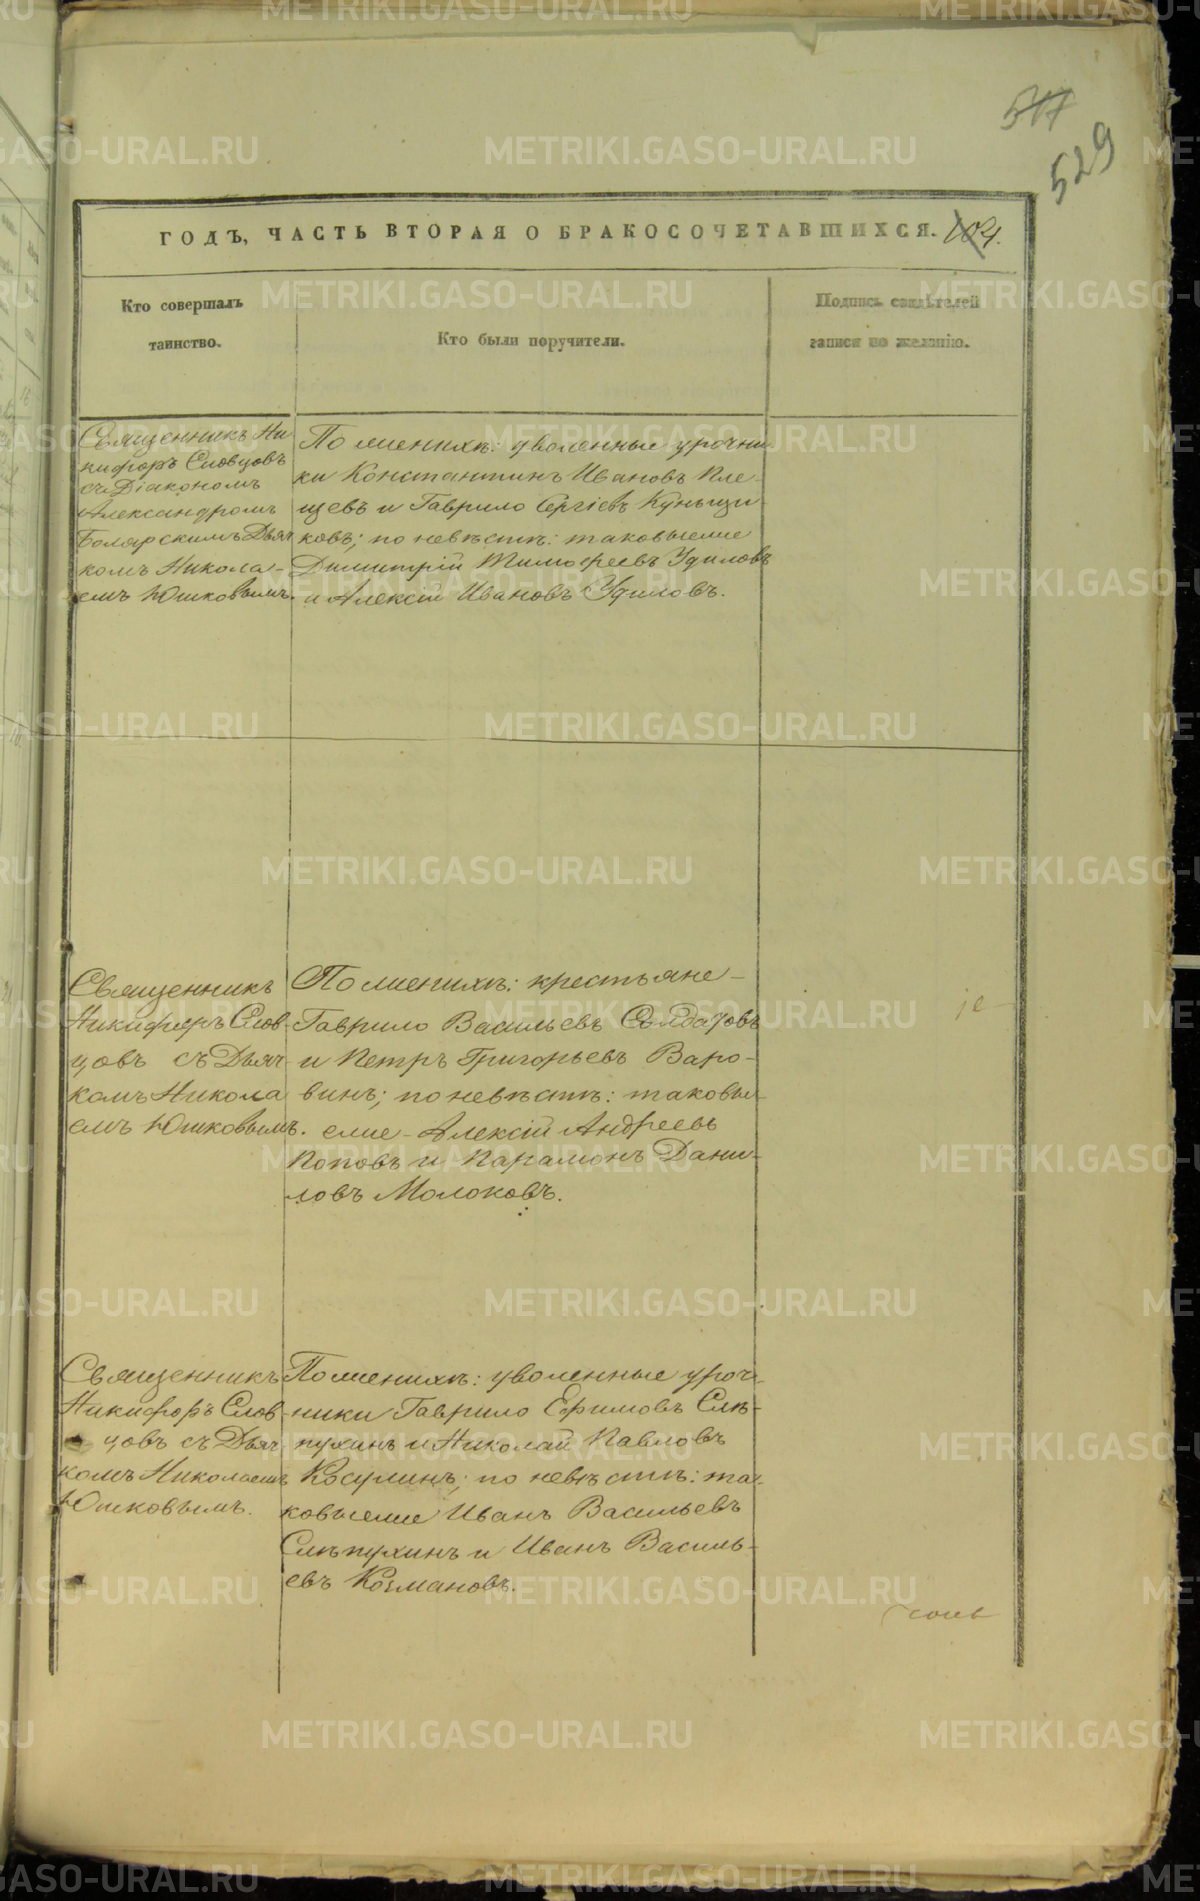 517
529
ГОДЪ, ЧАСТЬ ВТОРАЯ О БРАКОСОЧЕТАВШИХСЯ. 104.
Кто совершалъ
таинство.
Кто были поручители.
Подпись свидѣтелей
записи по желанію.
Священникъ Ни
кифоръ Словцовъ
съ Діакономъ
Александромъ
Боярскимъ Дьяч
комъ Никола-
емъ Юшковымъ.
По женихѣ: уволенные урочни
ки Константинъ Ивановъ Пле-
щевъ и Гаврило Сергіевъ Куньщи
ковъ; по невѣстѣ: таковыеже
Димитрій Тимофеевъ Удиловъ
и Алексій Ивановъ Удиловъ.
Священникъ
Никифоръ Слов-
цовъ съ Дьяч-
комъ Никола
емъ Юшковымъ.
По женихѣ: крестьяне-
Гаврило Васильевъ Солдатовъ
и Петръ Григорьевъ Варо-
винъ; по невѣстѣ: таковы-
еже-Алексій Андреевъ
Поповъ и Парамонъ Дани-
ловъ Молоковъ.
Священникъ
Никифоръ Слов-
цовъ съ Дьяч
комъ Николаемъ
Юшковымъ.
По женихѣ: уволенные уроч-
ники Гаврило Ефимовъ Слѣ-
пухинъ и Николай Павловъ
Косулинъ; по невѣстѣ: та-
ковыеже Иванъ Васильевъ
Слѣпухинъ и Иванъ Василь-
евъ Козмановъ.
METRIKI.GASO-URAL.RU